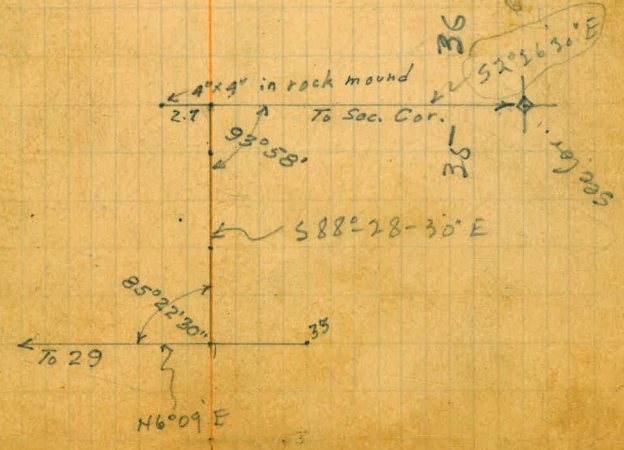 36
S2°26'30"E
4"x4" in rock mound
2.7
To Sec. Cor.
93°58'
35
Sec Cor.
S88°-28-30"E
85°22'30"
35
To 29
N6°09'E